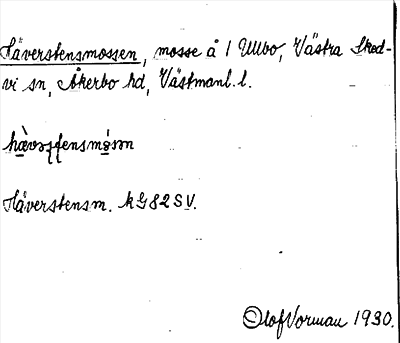 Håverstensmossen, mosse å 1 Ullbo, Västra Sked-
vi sn, Åkerbo hd, Västmanl. l.
Håverstensm. kG82SV.
Olof Vorman 1930.